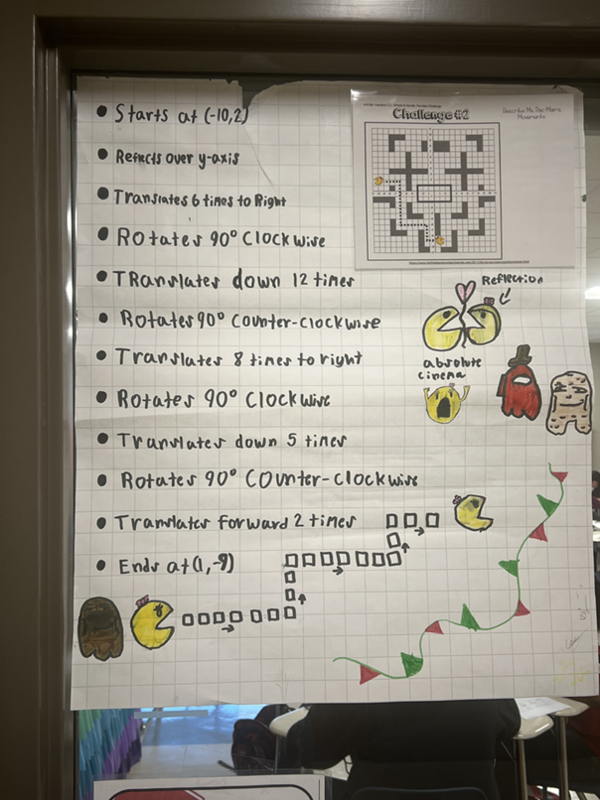 • Starts at (-10,2)
• Reflects over y-axis
• Translates 6 times to Right
• Rotates 90° Clockwise
• TRanslates down 12 times
• Rotates 90° Counter-clockwise
• Translates 8 times to right
• Rotates 90° Clockwise
• Translates down 5 times
• Rotates 90° Counter-clockwise
• Translates forward 2 times
• Ends at (1,-9)
Challenge #2
Describe Ms. Pac-Man's
Movements
Reflection
absolute
cinema